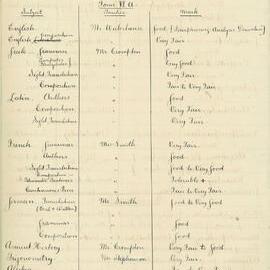 Form VI A.
Subject Teacher Mark
English Mr Waterhouse Good (Paraphrasing Analysis Derivation)
Composition
English Literature " Very Fair
Greek Grammar Mr Crompton Good
" Very Fair
Sight Translation " Very Fair
Composition " Fair to Very Fair
Latin Authors " Good
Composition " Very Fair
Sight Translation " Very Fair
French Grammar Mr Smith Very Fair
Authors " Good
Sight Translation " Good to Very Good
Composition " Tolerable +
" Fair to Very Fair
German Translation Mr Smith Good to Very Good
Grammar " Good
Composition " Good
Ancient History Mr Crompton Very Fair to Good
Trigonometry Mr Stephenson Very Fair
Algebra